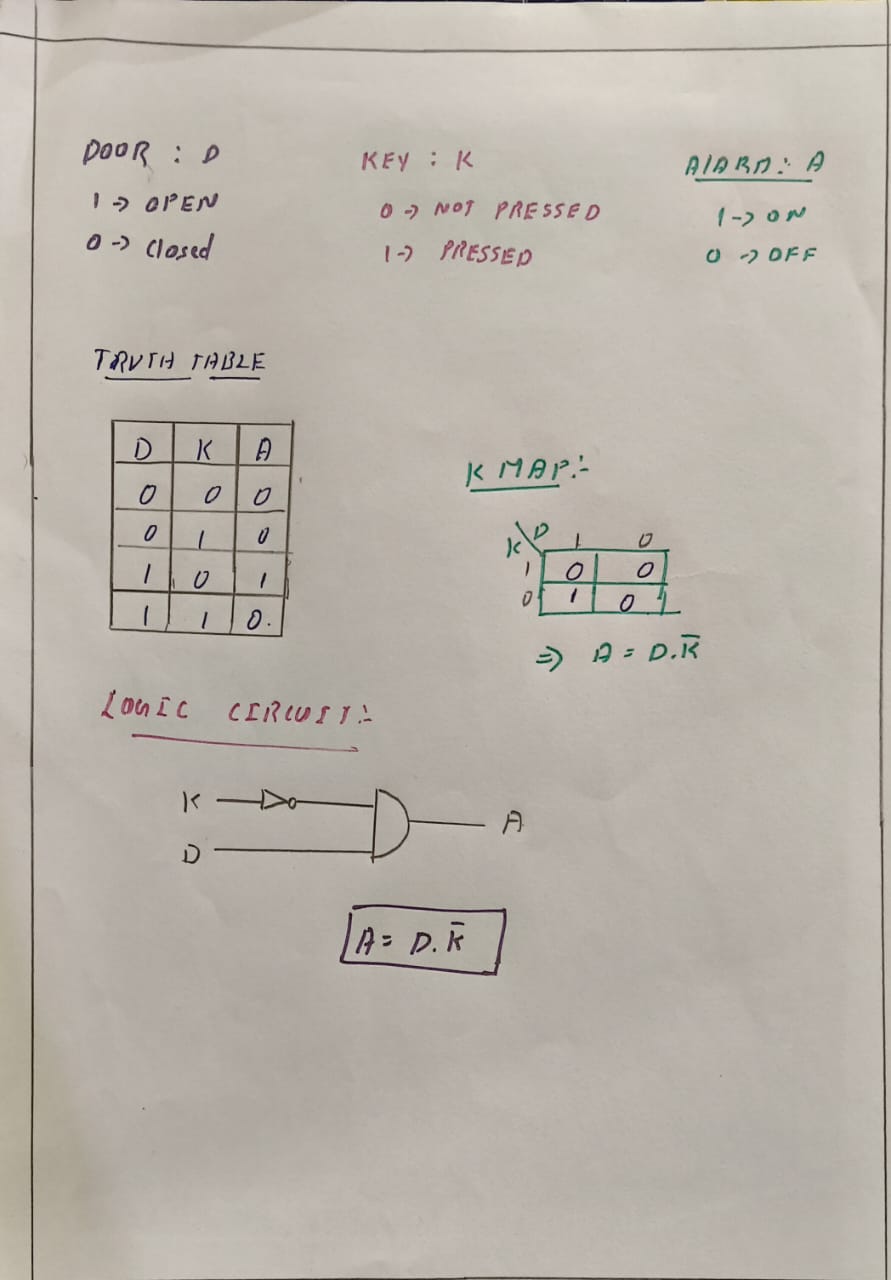 DOOR : D
1 → OPEN
0 → Closed
KEY : K
0 → NOT PRESSED
1 → PRESSED
AlARM :- A
1 → ON
0 → OFF
TRUTH TABLE
D K A
0 0 0
0 1 0
1 0 1
1 1 0.
K MAP :-
K\D 1 0
1 0 0
0 1 0
⇒ A = D.K̅
LOGIC CIRCUIT :-
K
D
A
A = D.K̅